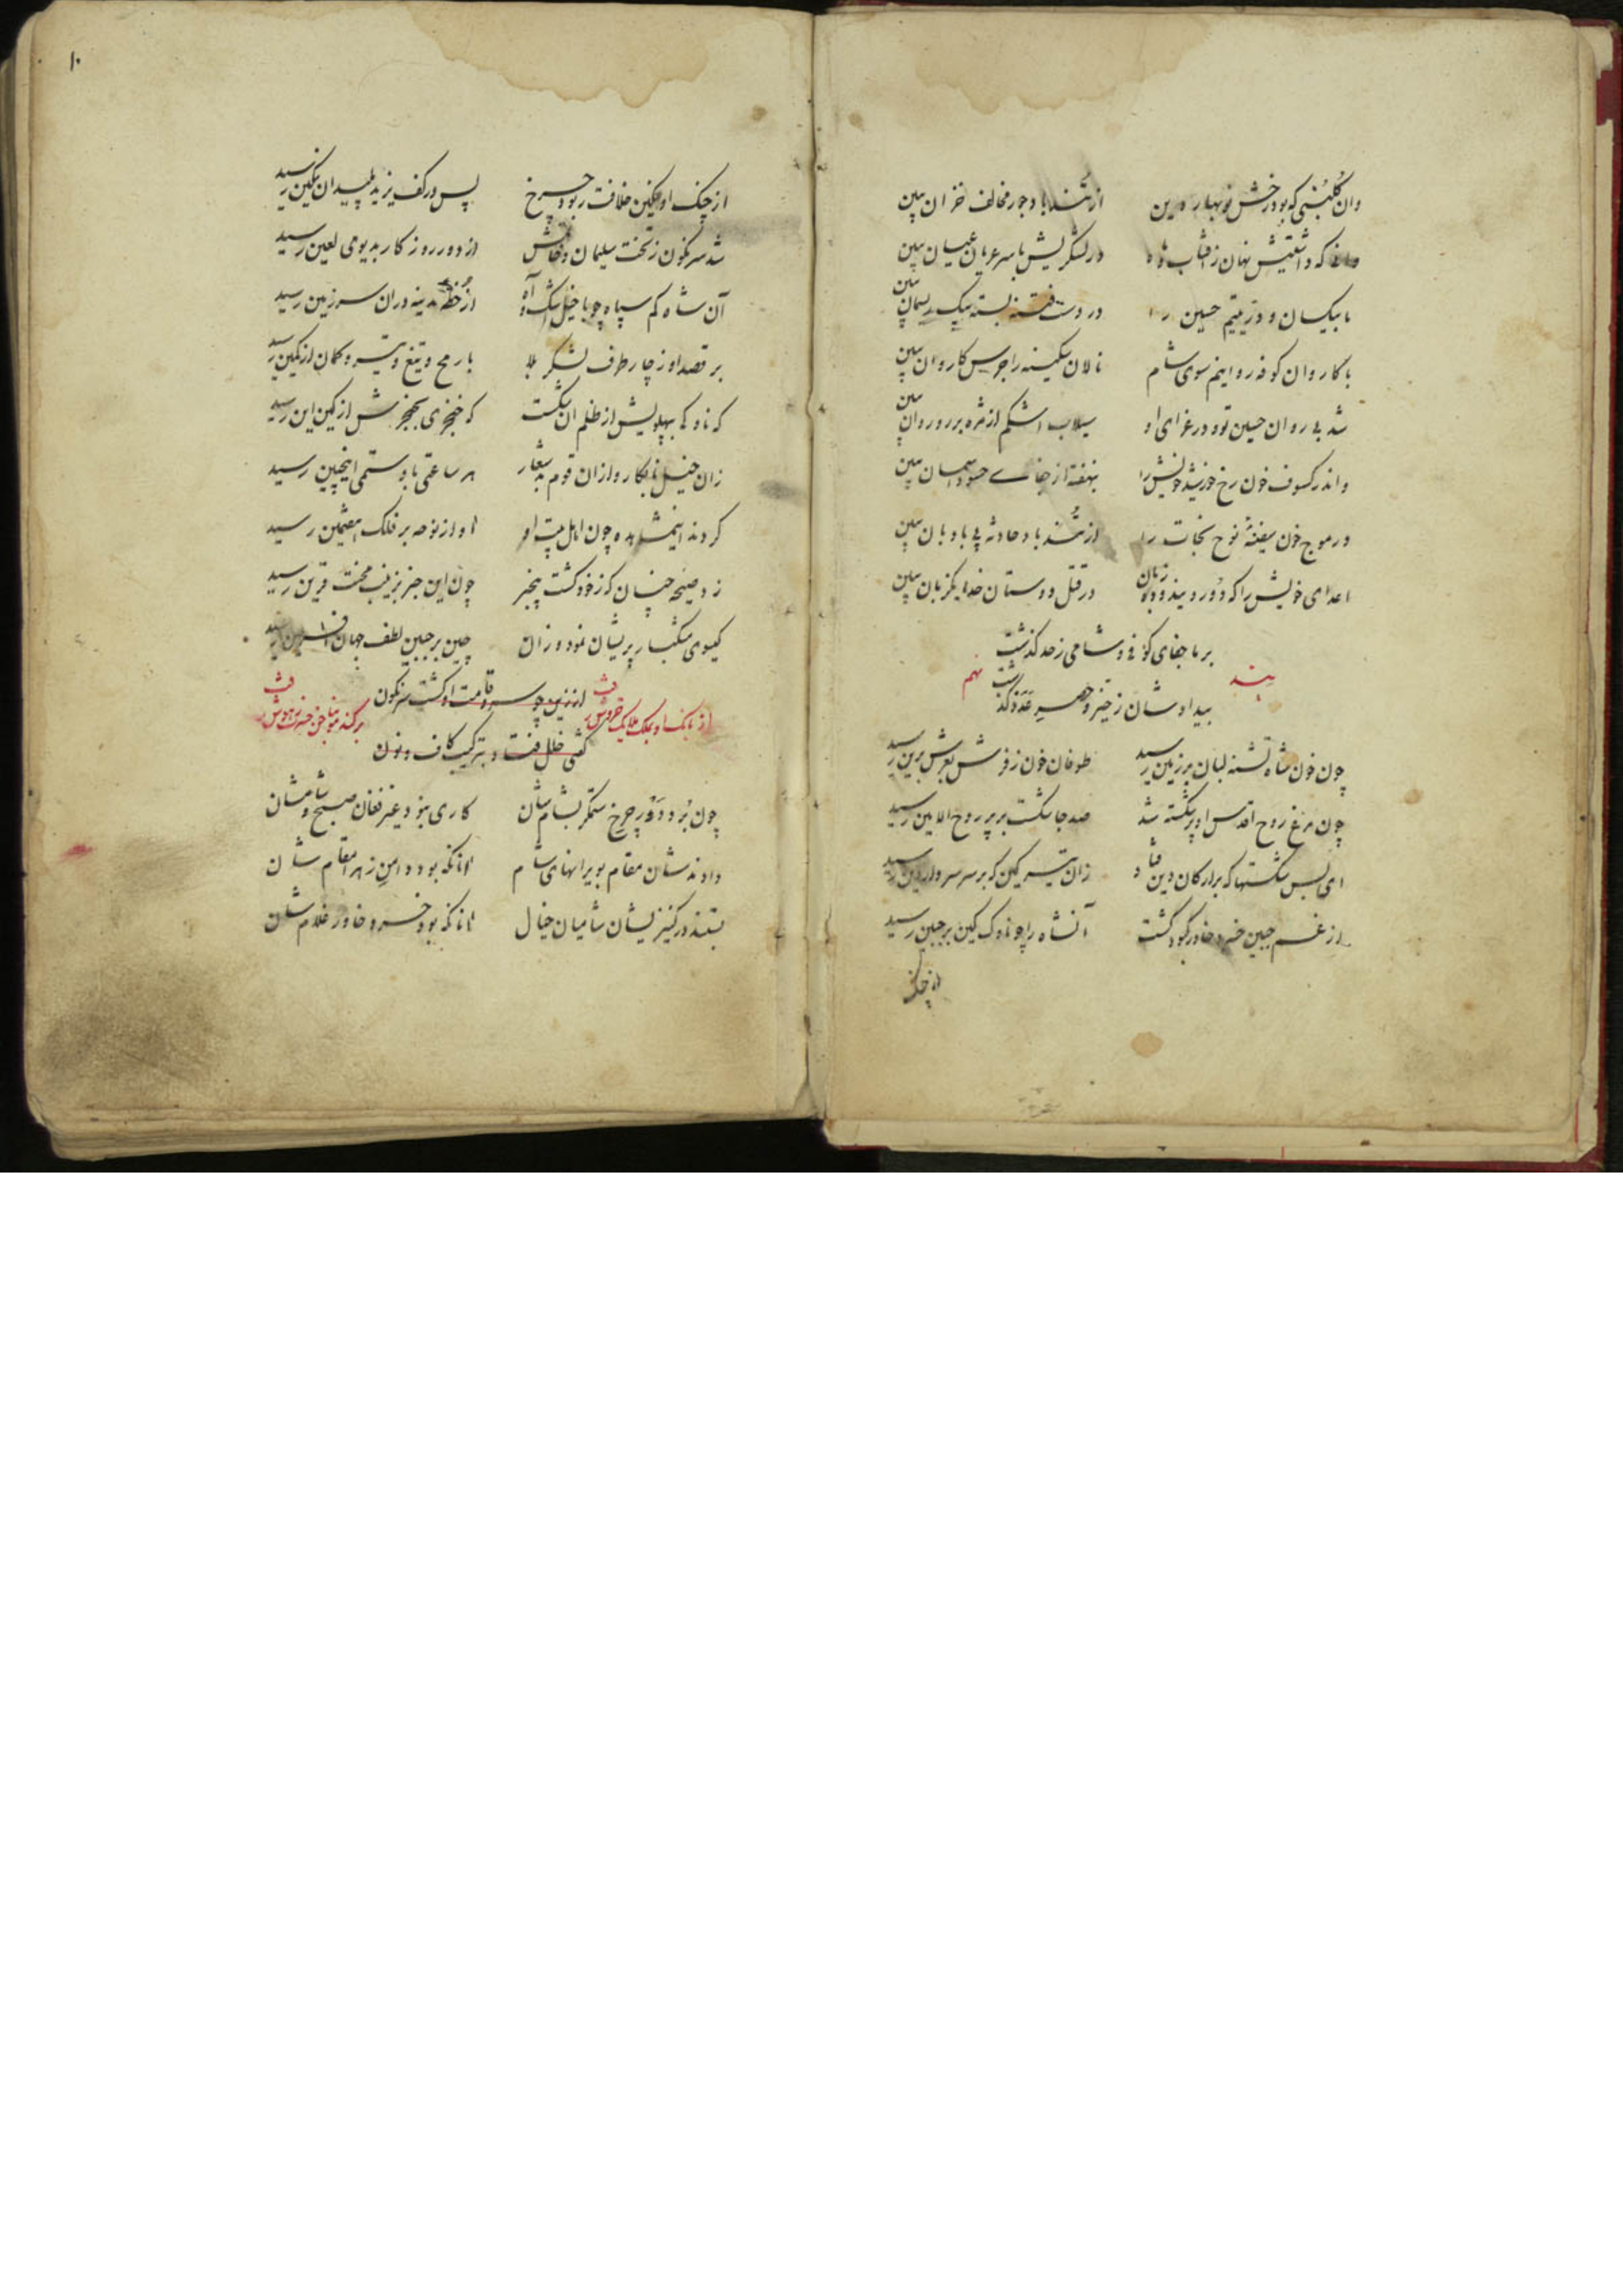 وان گلبنی که بود رخش نوبهار دین از تند باد جور مخالف خزان ببین
که داشتیش نهان ز آفتاب و ماه در لشکر لیش با سر عریان عیان ببین
ما بیکسان و در یتیم حسین را در دست فتنه بسته بیک ریسمان ببین
با کاروان کوفه روانیم سوی شام نالان سکینه را جرس کاروان ببین
شد بی روان حسین تو و در عزای او سیلاب اشکم از مژه بر رو روان ببین
واندر کسوف خون رخ خورشید خویش را نهفته از جفای حسود آسمان ببین
در موج خون سفینهٔ نوح نجات را از تند باد حادثه بی بادبان ببین
اعدای خویش را که دو رویند و دو زبان در قتل دوستان خدا یکزبان ببین
بر ما جفای کوفی و شامی ز حد گذشت
بند نهم
بیدادشان ز حیز و حصر عدد گذشت
چون خون شاه تشنه لبان بر زمین رسید طوفان خون ز فرش بعرش برین رسید
چون مرغ روح اقدس او پر شکسته شد صد جا شکست بر پر روح الامین رسید
ای بس شکستها که بر ارکان دین فتاد زان تیر کین که بر سر سردار دین رسید
از غم جبین خسرو خاور کبود گشت آنشاه را چو ناوک کین بر جبین رسید
از چنک
۱۰
از چنک او نکین خلافت ربود چرخ پس در کف یزید پلید ان نکین رسید
شد سرنگون ز تخت سلیمان وقتش از دور روزگار بدیوی لعین رسید
آن شاه کم سپاه چو با خیل اشک و آه از خطه مدینه دران سرزمین رسید
بر قصد او ز چار طرف لشکر بلا با رمح و تیغ و تیر و کمان از کمین رسید
که ناوکی بپهلویش از ظلم ان شکست که خنجری بحنجرش از کین این رسید
زان خیل نابکار و ازان قوم بد شعار هر ساعتی باو ستمی اینچنین رسید
کردند اینمشاهده چون اهل بیت او آواز نوحه بر فلک هفتمین رسید
زد صیحه چنان که ز خود گشت بیخبر چون این خبر بزینب محنت قرین رسید
گیسوی مشکبار پریشان نمود و زان چین بر جبین لطف جهان آفرین رسید
از زین چو سرو قامت او گشت سرنگون
از بانک او بملک ملایک خروش رفت
گفتی خلل فتاد بترکیب کاف و نون
چون برد دور چرخ ستمگر بشام شان کاری نبود غیر فغان صبح و شامشان
دادند شان مقام بویرانهای شام آنانکه بود دامن زهرا مقام شان
بستند در کنیزیشان شامیان خیال آنانکه بود خسرو خاور غلام شان